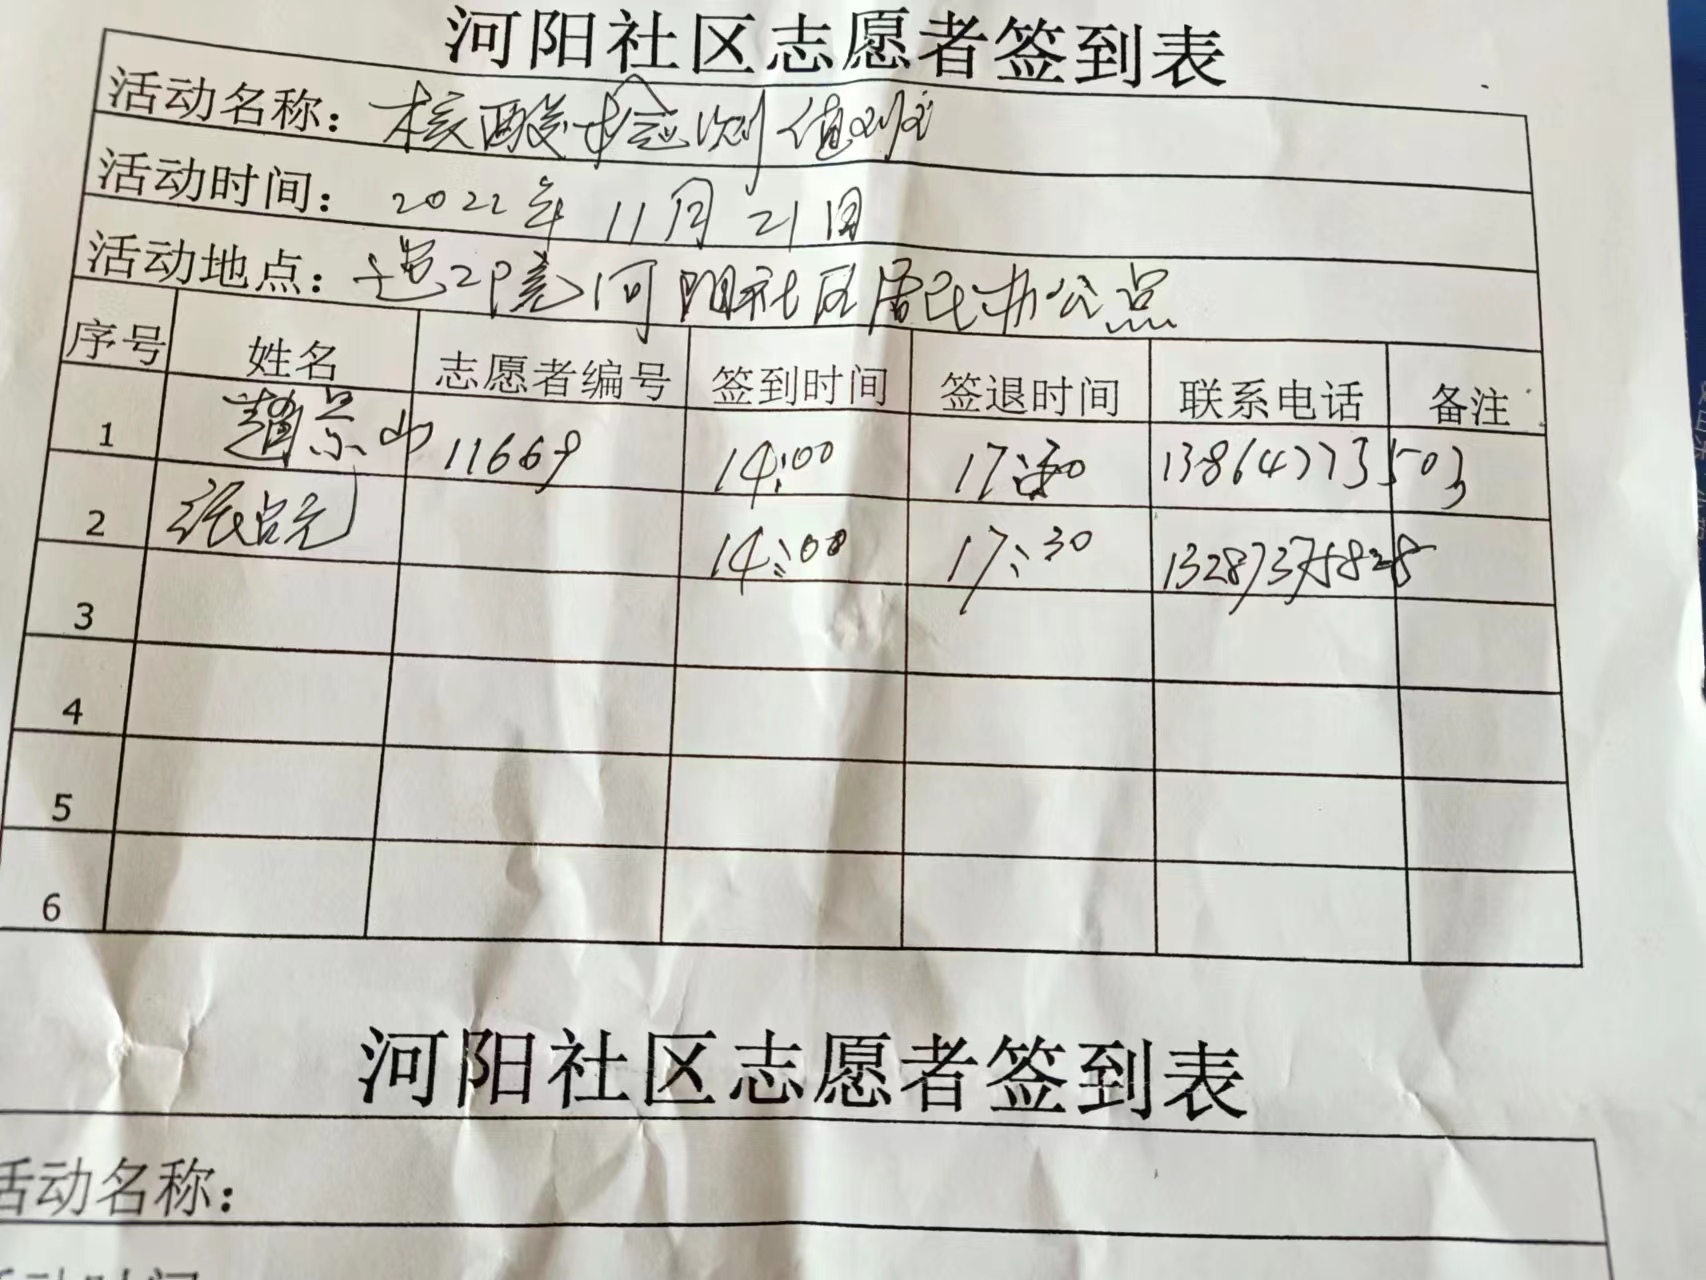 河阳社区志愿者签到表
活动名称：核酸检测值班
活动时间：2022年11月21日
活动地点：河阳社区居民办公点
序号 姓名 志愿者编号 签到时间 签退时间 联系电话 备注
1 赵景山 11669 14:00 17:30 13864773503
2 张占元 14:00 17:30 13287375828
3
4
5
6
河阳社区志愿者签到表
活动名称：
活动时间